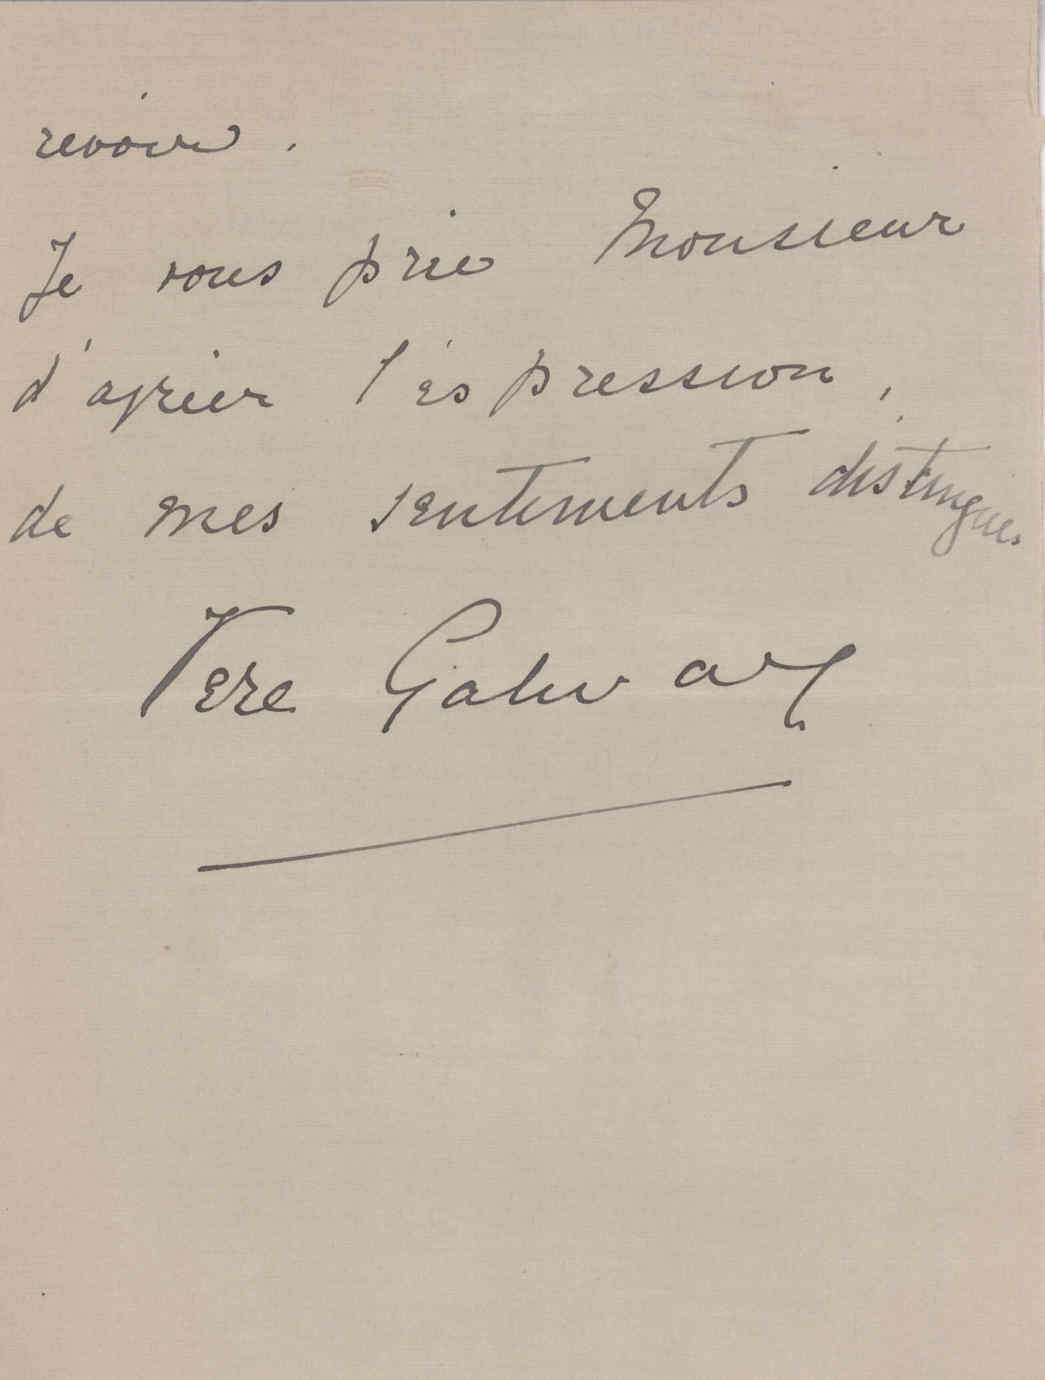 revoir.
Je vous prie Monsieur
d'agréer l'éspression,
de mes sentiments distingués
Vere Galway